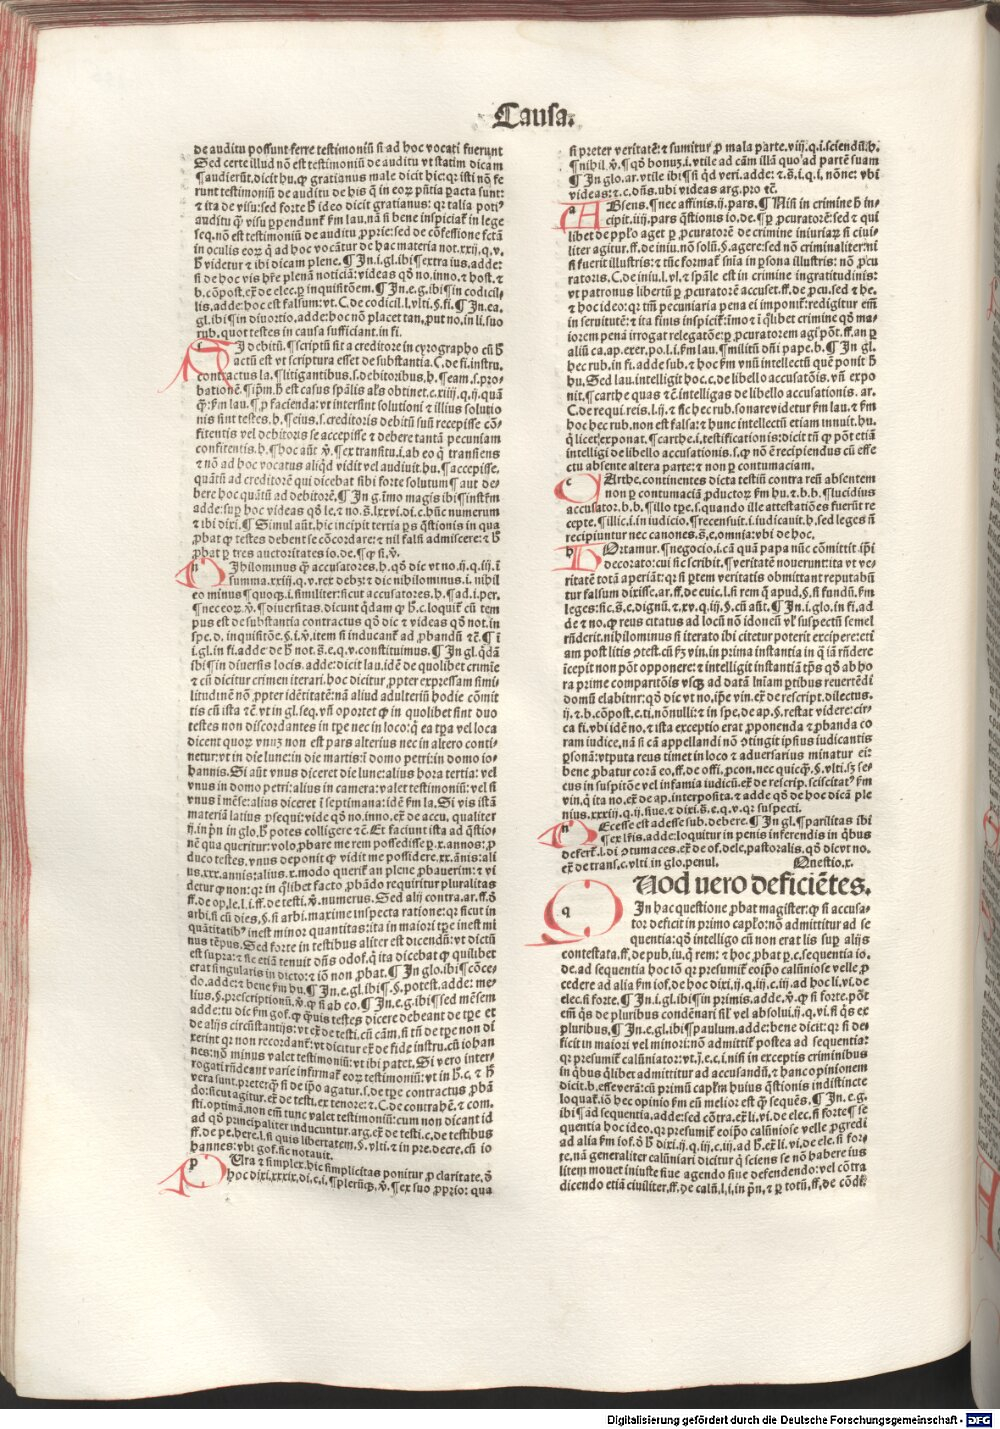 Causa.
de auditu possunt ferre testimoniũ si ad hoc vocati fuerunt
Sed certe illud nõ est testimoniũ de auditu vt statim dicam
¶ audierũt. dicit hu. ꝙ gratianus male dicit hic: qꝛ isti nõ fe
runt testimoniũ de auditu de his q̃ in eoꝝ pñtia ꝑacta sunt:
⁊ ita de visu: sed forte h̃ ideo dicit gratianus: qꝛ talia poti⁹
auditu q̃ visu ꝑpendunt᷑ fm lau. nã si bene inspiciat᷑ in lege
seq. nõ est testimoniũ de auditu ꝓprie: sed de cõfessione fctã
in oculis eoꝝ q̃ ad hoc vocãtur de hac materia not. xxij. q. v.
h̃ videtur ⁊ ibi dicam plene. ¶ In. i. gl. ibi ¶ extra ius. adde:
si de hoc vis hr̃e plenã noticiã: videas qõ no. inno. ⁊ host. ⁊
b. cõpost. ex̃ de elec. ꝑ inquisitõem. ¶ In. e. g. ibi ¶ in codicil-
lis. adde: hoc est falsum: vt. C. de codicil. l. vlti. §. fi. ¶ In. ea.
gl. ibi ¶ in diuortio. adde: hoc nõ placet tan. put no. in li. suo
rub. quot testes in causa sufficiant. in fi.
t Id debitũ. ¶ scriptũ sit a creditore in cyrographo cũ h̃
actũ est vt scriptura esset de substantia. C. de fi. instru.
contractus la. ¶ litigantibus. s. debitoribus. h. ¶ eam. s. pro-
bationẽ. ¶ ipm̃. h̃ est casus spãlis als̃ obtinet. c. xiiij. q. ij. quã
q̃. fm lau. ¶ ꝓ facienda: vt intersint solutioni ⁊ illius solutio
nis sint testes. h. ¶ eius. s. creditoris debitũ suũ recepisse cõ-
fitentis vel debitoris se accepisse ⁊ debere tantã pecuniam
confitentis. h. ¶ hoc aũt ṽ. ¶ ex transitu. i. ab eo q̃ transiens
⁊ nõ ad hoc vocatus aliq̃d vidit vel audiuit. hu. ¶ accepisse.
quãtũ ad creditorẽ qui dicebat sibi forte solutum ¶ aut de-
bere hoc quãtũ ad debitorẽ. ¶ In g. ĩmo magis ibi ¶ instr̃m
adde: suꝑ hoc videas qõ le. ⁊ no. s̃. lxxvi. di. c. hũc numerum
⁊ ibi dixi. ¶ Simul aũt. hic incipit tertia ps q̃stionis in qua
ꝓbat ꝙ testes debent se cõcordare: ⁊ nil falsi admiscere: ⁊ h̃
ꝓbat ꝑ tres auctoritates io. de. ¶ ꝙ si. ṽ.
n Ihilominus q̃ accusatores. h. qõ dic vt no. ij. q. iij. ĩ
summa. xxiij. q. v. rex debꝫ: ⁊ dic nihilominus. i. nihil
eo minus ¶ quoqꝫ. i. similiter: sicut accusatores. h. ¶ ad. i. per.
¶ nec eoꝝ. ṽ. ¶ diuersitas. dicunt q̃dam ꝙ h̃. c. loquit᷑ cũ tem
pus est de substantia contractus qõ dic ⁊ videas qõ not. in
spe. d. inquisitõe. §. i. ṽ. item si inducant᷑ ad ꝓbandũ ⁊c̃. ¶ ĩ
i. gl. in fi. adde de h̃ not. s̃. e. q. v. constituimus. ¶ In gl. q̃dã
ibi ¶ in diuersis locis. adde: dicit lau. idẽ de quolibet crimĩe
⁊ cũ dicitur crimen iterari. hoc dicitur ꝓpter expressam simi
litudinẽ nõ ꝓpter idẽtitatẽ: nã aliud adulteriũ hodie cõmit
tis cũ ista ⁊c̃. vt in gl. seq. vñ oportet ꝙ in quolibet sint duo
testes non discordantes in tp̃e nec in loco: q̃ ea tp̃a vel loca
dicent quoꝝ vnuꝫ non est pars alterius nec in altero conti-
netur: vt in die lune: in die martis: ĩ domo petri: in domo io-
hannis. Si aũt vnus diceret die lune: alius hora tertia: vel
vnus in domo petri: alius in camera: valet testimoniũ: vel si
vnus ĩ mẽse: alius diceret ĩ septimana: idẽ fm la. Si vis istã
materiã latius ꝓsequi: vide qõ no. inno. ex̃ de accu. qualiter
ij. in pñ in glo. h̃ potes colligere ⁊c̃. Et faciunt ista ad q̃stio-
nẽ qua queritur: volo ꝓbare me rem possedisse ꝑ. x. annos: ꝓ
duco testes. vnus deponit ꝙ vidit me possidere. xx. ãnis: ali
us. xxx. annis: alius. x. modo querit᷑ an plene ꝓbauerim: ⁊ vi
detur ꝙ non: qꝛ in q̃libet facto ꝓbãdo requiritur pluralitas
ff. de op. le. l. i. ff. de testi. ṽ. numerus. Sed alij contra. ar. ff. õ
arbi. si cũ dies. §. si arbi. maxime inspecta ratione: qꝛ sicut in
quãtitatib⁹ inest minor quantitas: ita in maiori tp̃e inest mi
nus tẽpus. Sed forte in testibus aliter est dicendũ: vt dictũ
est supra: ⁊ sic etiã tenuit dñs odof. q̃ ita dicebat ꝙ quilibet
erat singularis in dicto: ⁊ iõ non ꝓbat. ¶ In glo. ibi ¶ cõce-
do. adde: ⁊ bene fm hu. ¶ In. e. gl. ibi ¶ §. potest. adde: me-
lius. §. prescriptionũ. ṽ. ꝙ si ab eo. ¶ In. e. g. ibi ¶ sed mẽsem
adde: tu dic fm gof. ꝙ q̃uis testes dicere debeant de tp̃e et
de alijs circũstantijs: vt ex̃ de testi. cũ cãm. si tñ de tp̃e non di
xerint qꝛ non recordant᷑: vt dicitur ex̃ de fide instru. cũ iohan
nes: nõ minus valet testimoniũ: vt ibi patet. Si vero inter-
rogati rñdeant varie infirmat᷑ eoꝝ testimoniũ: vt in h̃. c. ⁊ h̃
vera sunt. preterꝙ̃ si de ip̃o agatur. s. de tp̃e contractus ꝓbã
do: sicut agitur. ex̃ de testi. ex tenore: ⁊. C. de contrahẽ. ⁊ com.
sti. optimã. non em̃ tunc valet testimoniũ: cum non dicant id
ad qõ principaliter inducuntur. arg. ex̃ de testi. c. de testibus
ff. de pe. here. l. si quis libertatem. §. vlti. ⁊ in pre. decre. cũ io
hannes: vbi gof. sic notauit.
p Ura ⁊ simplex. hic simplicitas ponitur ꝓ claritate. õ
hoc dixi. xxxix. di. c. i. ¶ plerũqꝫ. ṽ. ¶ ex suo ꝓprio: qua
si preter veritatẽ: ⁊ sumitur ꝓ mala parte. viij. q. i. sciendũ. h.
¶ nihil. ṽ. ¶ qõ bonuꝫ. i. vtile ad cãm illã quo'ad partẽ suam
¶ In glo. ar. vtile ibi ¶ si q̃d veri. adde: ⁊ s̃. i. q. i. nõne: vbi
videas: ⁊. c. dñs. vbi videas arg. pro ⁊c̃.
a ABsens. ¶ nec affinis. ij. pars. ¶ Nisi in crimine h̃ in-
cipit. iiij. pars q̃stionis io. de. ¶ ꝑ ꝓcuratorẽ: sed ⁊ qui
libet de pp̃lo aget ꝑ ꝓcuratorẽ de crimine iniuriaꝝ si ciui-
liter agitur. ff. de iniu. nõ solũ. §. agere: sed nõ criminaliter: ni
si fuerit illustris: ⁊ tũc format᷑ snia in ꝑsona illustris: nõ ꝓcu
ratoris. C. de iniu. l. vl. ⁊ spãle est in crimine ingratitudinis:
vt patronus libertũ ꝑ ꝓcuratorẽ accuset. ff. de ꝓcu. sed ⁊ he.
⁊ hoc ideo: qꝛ tm̃ pecuniaria pena ei imponit᷑: redigitur em̃
in seruitutẽ: ⁊ ita finis inspicit᷑: ĩmo ⁊ ĩ q̃libet crimine qõ ma-
iorem penã irrogat relegatõe: ꝑ ꝓcuratorem agi põt. ff. an ꝑ
aliũ ca. ap. exer. po. l. i. fm lau. ¶ militũ dñi pape. h. ¶ In gl.
hec rub. in fi. adde sub. ⁊ hoc fm vnũ intellectũ quẽ ponit h̃
hu. Sed lau. intelligit hoc. c. de libello accusatõis. vñ expo
nit. ¶ carthe quas ⁊ c̃ intelligas de libello accusationis. ar.
C. de requi. reis. l. ij. ⁊ sic hec rub. sonare videtur fm lau. ⁊ fm
hoc hec rub. non est falsa: ⁊ hunc intellectũ etiam innuit. hu.
q̃ licet: exponat. ¶ carthe. i. testificationis: dicit tñ ꝙ põt etiã
intelligi de libello accusationis. s. ꝙ nõ ẽ recipiendus cũ esse
ctu absente altera parte: ⁊ non ꝑ contumaciam.
c CArthe. continentes dicta testiũ contra reũ absentem
non ꝑ contumaciã ꝓductoꝝ fm hu. ⁊ b. b. ¶ lucidius
accusator. b. b. ¶ illo tp̃e. s. quando ille attestatiões fuerũt re
cepte. ¶ illic. i. in iudicio. ¶ recensuit. i. iudicauit. h. sed leges ñ
recipiuntur nec canones. s̃. e. omnia: vbi de hoc.
h HOrtamur. ¶ negocio. i. cã quã papa nũc cõmittit. ip̃i
decorato: cui sic scribit. ¶ veritatẽ nouerunt: ita vt ve-
ritatẽ totã aperiãt: qꝛ si ꝑtem veritatis obmittant reputabũ
tur falsum dixisse. ar. ff. de euic. l. si rem q̃ apud. §. si fundũ. fm
leges: sic. s̃. e. dignũ. ⁊. xv. q. iij. §. cũ aũt. ¶ In. i. glo. in fi. ad
de ⁊ no. ꝙ reus citatus ad locũ nõ idoneũ vl᷑ suspectũ semel
rñderit. nihilominus si iterato ibi citetur poterit excipere: eti
am post litis ꝯtest. cũ fꝫ vin. in prima instantia in q̃ iã rñdere
ĩcepit non põt opponere: ⁊ intelligit instantiã tp̃s qõ ab ho
ra prime comparitõis vsqꝫ ad datã lniam ꝑtibus reuertẽdi
domũ elabitur: qõ dic vt no. ip̃e vin. ex̃ de rescript. dilectus.
ij. ⁊ b. cõpost. e. ti. nõnulli: ⁊ in spe. de ap. §. restat videre: cir-
ca fi. vbi idẽ no. ⁊ ista exceptio erat ꝓponenda ⁊ ꝓbanda co
ram iudice. nã si cã appellandi nõ ꝯtingit ipsius iudicantis
ꝑsonã: vtputa reus timet in loco ⁊ aduersarius minatur ei:
bene ꝓbatur corã eo. ff. de offi. ꝓcon. nec quicꝙ̃. §. vlti. sꝫ se-
cus in suspitõe vel infamia iudicũ. ex̃ de rescrip. sciscitat᷑ fm
vin. q̃ ita no. ex̃ de ap. interposita. ⁊ adde qõ de hoc dicã ple
nius. xxxiij. q. ij. siue. ⁊ dixi. s̃. e. q. v. qꝛ suspecti.
n Ecesse est adesse sub. debere. ¶ In gl. ¶ parilitas ibi
¶ ex lr̃is. adde: loquitur in penis inferendis in q̃bus
defert᷑. l. di ꝯtumaces. ex̃ de of. dele. pastoralis. qõ dic vt no.
ex̃ de trans. c. vlti in glo. penul. Questio. x.
q QUod vero deficiẽtes.
In hac questione ꝓbat magister: ꝙ si accusa-
tor deficit in primo capl̃o: nõ admittitur ad se
quentia: qõ intelligo cũ non erat lis suꝑ alijs
contestata. ff. de pub. iu. q̃ rem: ⁊ hoc ꝓbat ꝑ. c. sequentia io.
de. ad sequentia hoc iõ qꝛ presumit᷑ eoip̃o calũniose velle ꝓ
cedere ad alia fm iof. de hoc dixi. ij. q. iij. c. iij. ad hoc li. vi. de
elec. si forte. ¶ In. i. gl. ibi ¶ in primis. adde. ṽ. ꝙ si forte. põt
em̃ q̃s de pluribus condẽnari sil᷑ vel absolui. ij. q. vi. si q̃s ex
pluribus. ¶ In. e. gl. ibi ¶ paulum. adde: bene dicit: qꝛ si de-
ficit in maiori vel minori: nõ admittit᷑ postea ad sequentia:
qꝛ presumit᷑ calũniator: vt. j. e. c. i. nisi in exceptis criminibus
in q̃bus q̃libet admittitur ad accusandũ. ⁊ hanc opinionem
dicit. h. esse verã: cũ primũ capl̃m huius q̃stionis indistincte
loquat᷑. iõ hec opinio fm eũ melior est ꝙ̃ sequẽs. ¶ In. e. g.
ibi ¶ ad sequentia. adde: sed cõtra. ex̃ li. vi. de elec. si forte ¶ se
quentia hoc ideo. qꝛ presumit᷑ eoip̃o calũniose velle ꝓgredi
ad alia fm iof. õ h̃ dixi. ij. q. iij. c. iij. ad h̃. ex̃ li. vi. de ele. si for-
te. nã generaliter calũniari dicitur q̃ sciens se nõ habere ius
litem mouet iniuste siue agendo siue defendendo: vel cõtra
dicendo etiã ciuiliter. ff. de calũ. l. i. in pñ. ⁊ ꝑ totũ. ff. de cõdi.
Digitalisierung gefördert durch die Deutsche Forschungsgemeinschaft - DFG